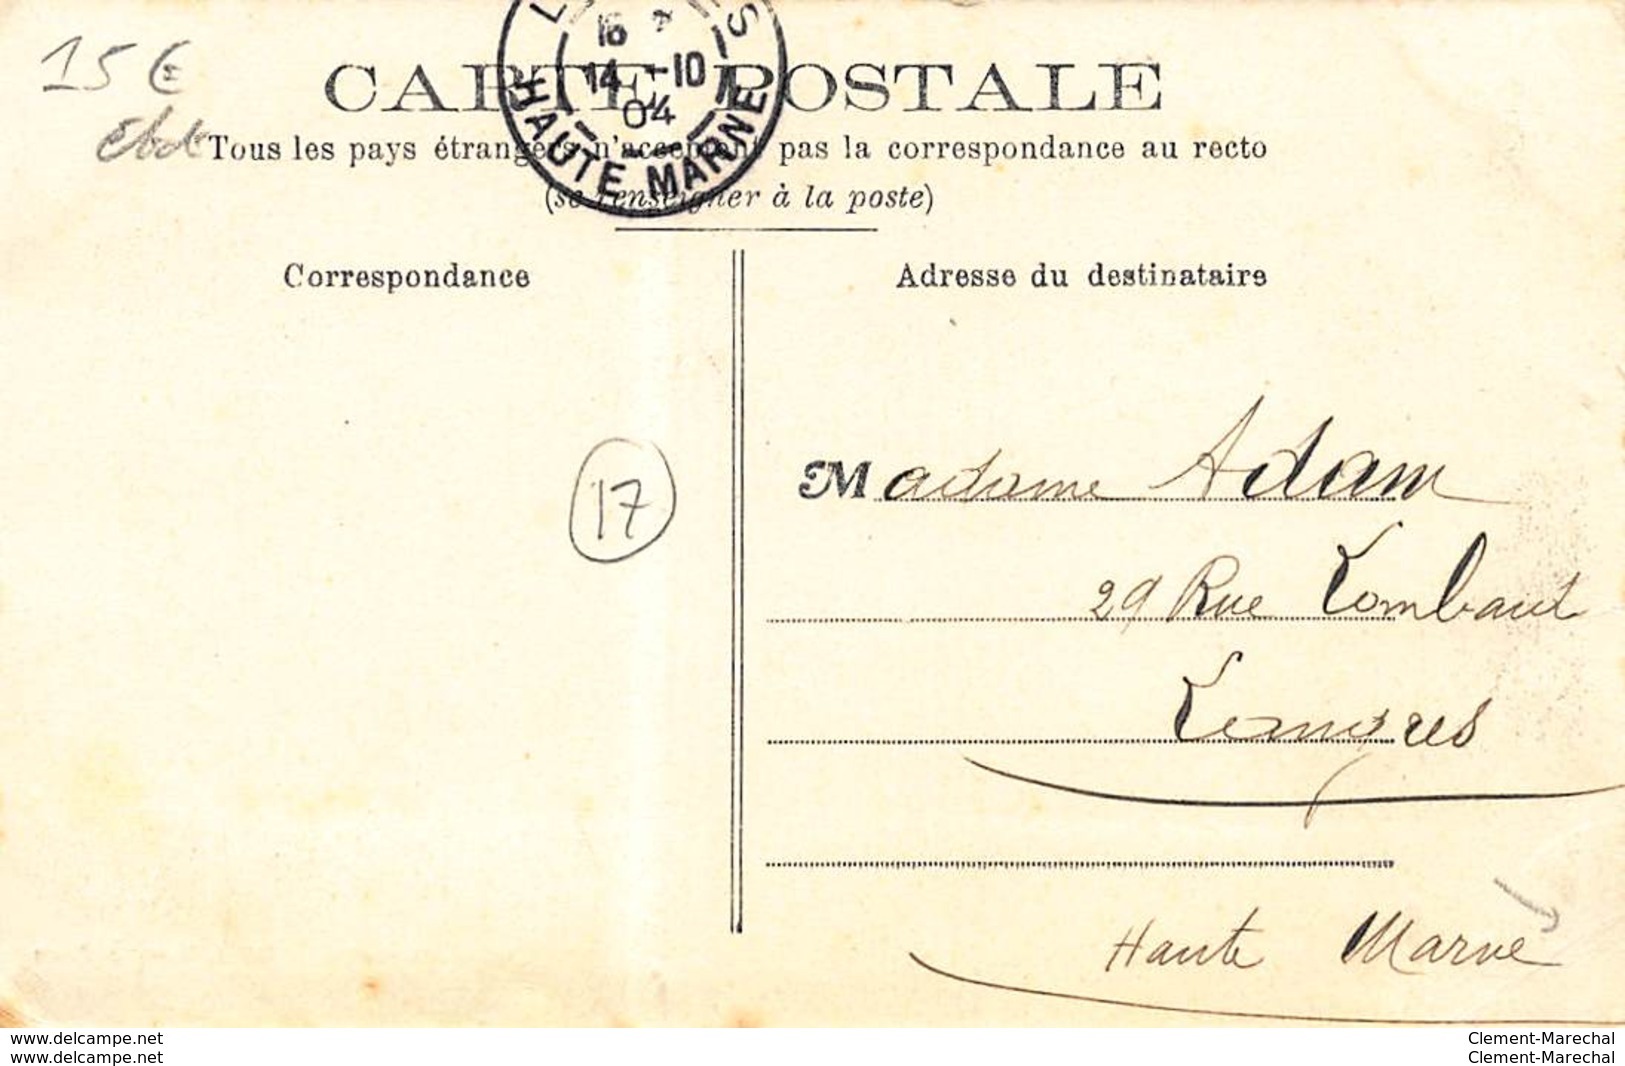 15 €
CARTE POSTALE
Tous les pays étrangers n'acceptent pas la correspondance au recto
(se renseigner à la poste)
16 *
14 -10
04
HAUTE MARNE
Correspondance
Adresse du destinataire
17
Madame Adam
29 Rue Lombaut
Langres
Haute Marne
www.delcampe.net
www.delcampe.net
Clement-Marechal
Clement-Marechal